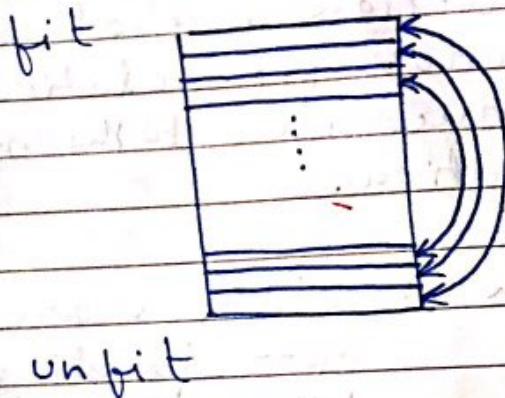 fit
unfit